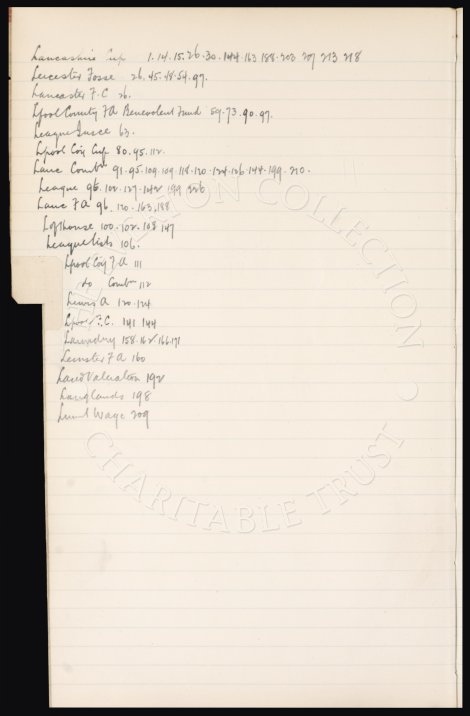 Lancashire Cup 1.14.15.26.30.144.163.188.203.207 213 218
Leicester Fosse 26.45.48.54.97.
Lancaster F.C 26.
Lpool County FA Benevolent Fund 59.73.90.97.
League 63.
Lpool Coy Cup 80.95.112.
Lanc Combn 91.95.109.109.118.120.124.126.144.199.210.
League 96.102.127.142 199 226
Lanc FA 96.120.163.188
Lofthouse 100.102.108 147
League lists 106.
Lpool Coy F.A 111
do Combn 112
Lewis A 120.124
Lpool F.C. 141 144
Laundry 158.162 166.171
Leinster FA 160
Land Valuation 192
Langlands 198
Wage 209
COLLECTION
CHARITABLE TRUST